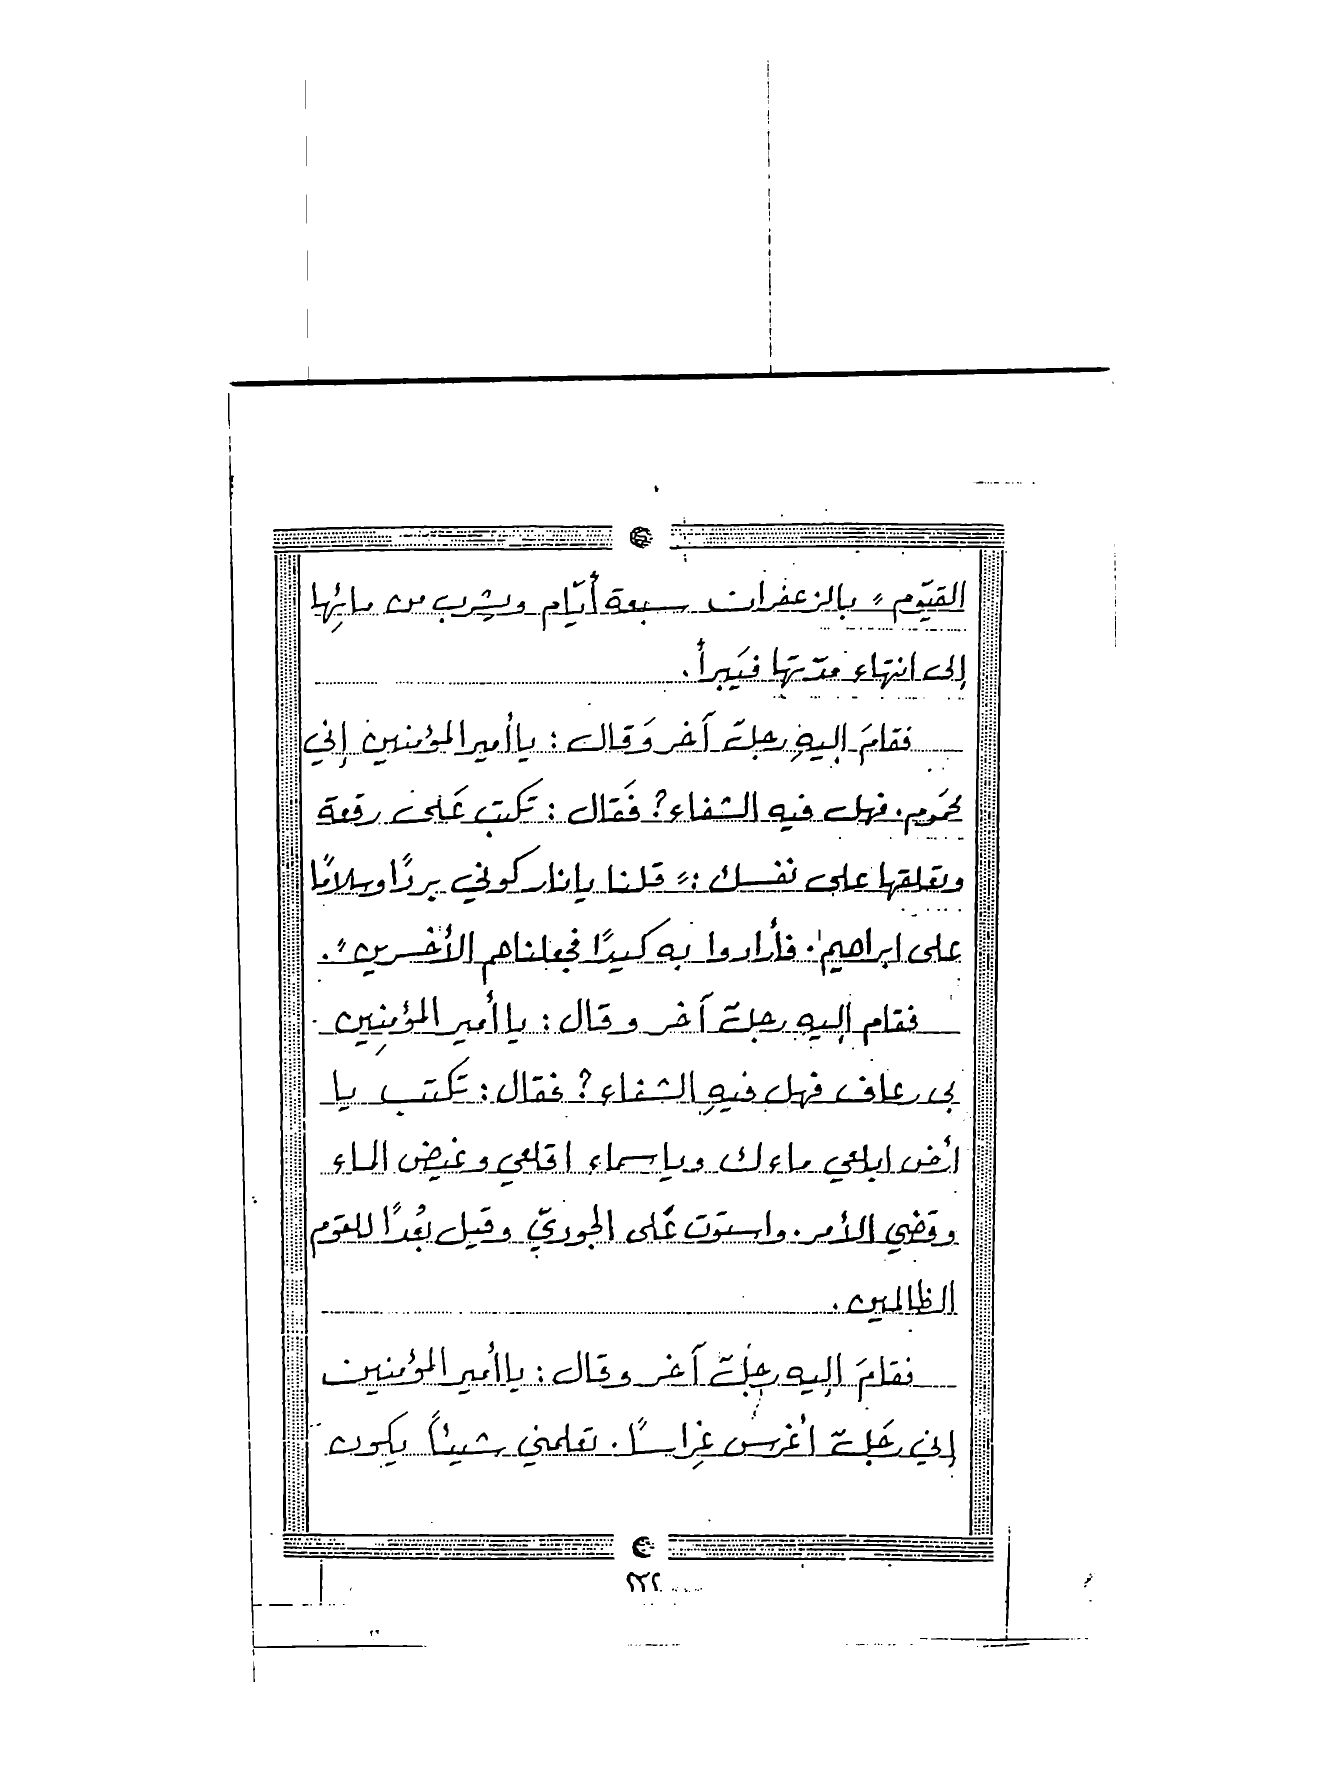 القيّوم" بالزعفران سبعة أيّام ويشرب من مائِها
إلى انتهاء مدّتها فيَبرأ.
فقامَ إليهِ رجلٌ آخر وَقال: يا أمير المؤمنين إني
محموم. فهل فيه الشفاء؟ فَقال: تكتب عَلى رقعة
وتعلقها على نفسك: "قلنا يا نار كوني بردًا وسلامًا
على ابراهيم. فأرادوا به كيدًا فجعلناهم الأخسرين".
فقام إليه رجلٌ آخر وقال: يا أمير المؤمنِين
بي رعاف فهل فيهِ الشفاء؟ فقال: تكتب يا
أرض ابلعي ماءك ويا سماء اقلعي وغيض الماء
وقضي الأمر. واستوَت عَلى الجوديّ وقيل بعُدًا للقوم
الظالمين.
فقامَ إليه رجلٌ آخر وقال: يا أمير المؤمنين
إني رجَلٌ أغرس غِراسًا. تعلمني شيئاً يكون
٢٢٢